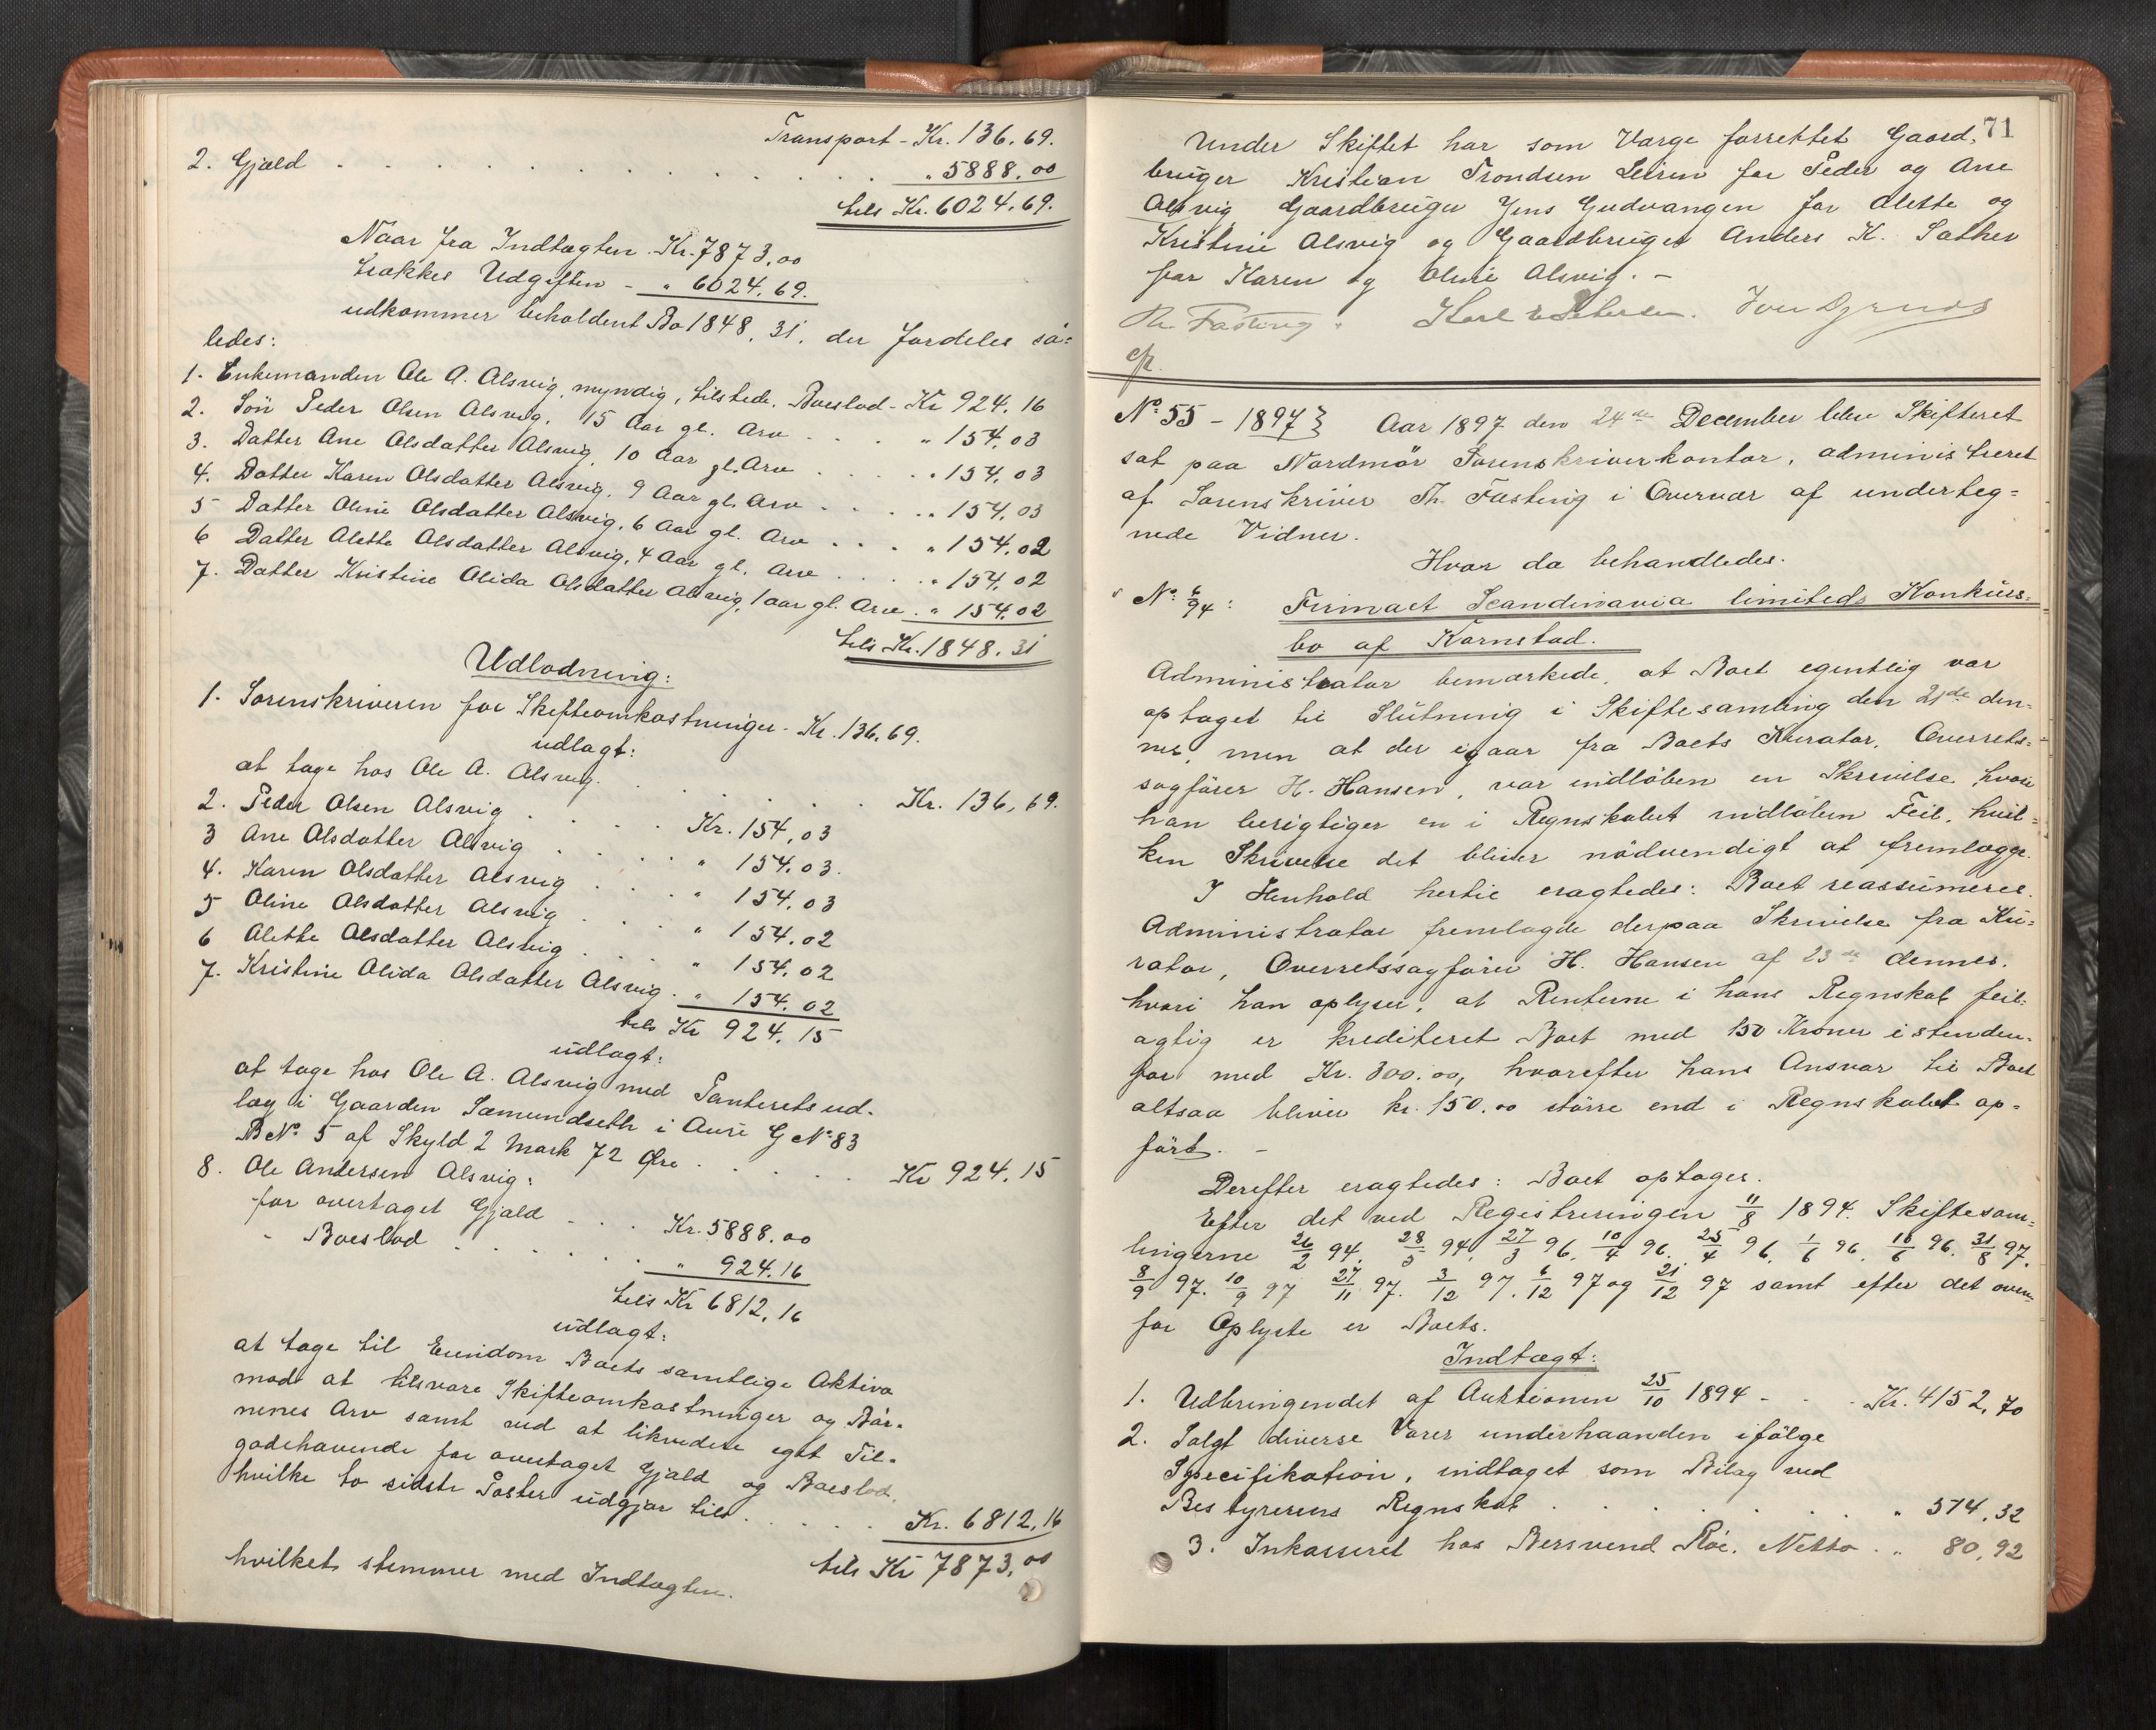 Transport - Kr. 136.69.
2. Gjæld . . . . . . . . . . . . . . " 5888.00
tils Kr. 6024.69.
Naar fra Indtægten Kr. 7873.00
trækkes Udgiften - " 6024.69.
udkommer beholdent Bo 1848.31, der fordeles så-
ledes:
1. Enkemanden Ole A. Alsvig, myndig, tilstede. Boeslod - Kr 924.16
2. Søn Peder Olsen Alsvig, 15 Aar gl. Arv . . . . " 154.03
3. Datter Ane Olsdatter Alsvig, 10 Aar gl. Arv . . . . " 154.03
4. Datter Karen Olsdatter Alsvig, 9 Aar gl. Arv . . . . " 154.03
5 Datter Oline Olsdatter Alsvig, 6 Aar gl. Arv . . . . " 154.02
6 Datter Alette Olsdatter Alsvig, 4 Aar gl. Arv . . . . " 154.02
7. Datter Kristine Olida Olsdatter Alsvig, 1 aar gl. Arv . " 154.02
tils Kr. 1848.31
Udlodning:
1. Sorenskriveren for Skifteomkostninger - Kr. 136.69.
udlagt:
at tage hos Ole A. Alsvig . . . . . . Kr. 136,69.
2. Peder Olsen Alsvig . . . . Kr. 154,03
3 Ane Olsdatter Alsvig . . . . " 154.03.
4. Karen Olsdatter Alsvig . . . " 154.03
5 Oline Olsdatter Alsvig . . . " 154.02
6 Alette Olsdatter Alsvig . . . " 154.02
7. Kristine Olida Olsdatter Alsvig . " 154.02
tils Kr 924.15
udlagt:
at tage hos Ole A. Alsvig med Panteretsud-
læg i Gaarden Sæmundseth i Aure G No 83
B No 5 af Skyld 2 Mark 72 Øre . . . . . Kr 924.15
8. Ole Andersen Alsvig:
for overtaget Gjæld - . . Kr. 5888.00
- Boeslod . . . . . . " 924.16
tils Kr 6812,16
udlagt:
at tage til Eiendom Boets samtlige Aktiva
mod at tilsvare Skifteomkostninger og Bør-
nenes Arv samt ved at likvidere eget Til-
godehavende for overtaget Gjæld og Boeslod,
hvilke to sidste Poster udgjør tils . . . . . Kr. 6812,16
tils Kr 7873.00
hvilket stemmer med Indtægten.
71
Under Skiftet har som Værge forrettet Gaard-
bruger Kristian Trondsen Leiren for Peder og Ane
Alsvig, Gaardbruger Jens Gudvangen for Alette og
Kristine Alsvig og Gaardbruger Anders K. Sæther
for Karen og Oline Alsvig. -
Th. Fasting.
No 55 - 1897 } Aar 1897 den 24de December blev Skifteret
sat paa Nordmør Sorenskriverkontor, administreret
af Sorenskriver Th. Fasting i Overvær af underteg-
nede Vidner.
Hvor da behandledes.
No 6/94: Firmaet Scandinavia limiteds Konkurs-
bo af Kornstad.
Administrator bemærkede, at Boet egentlig var
optaget til Slutning i Skiftesamling den 21de den-
nes, men at der igaar fra Boets Kurator, Overrets-
sagfører H. Hansen, var indløben en Skrivelse, hvori
han berigtiger en i Regnskabet indløben Feil, hvil-
ken Skrivelse det bliver nødvendigt at fremlægge.
I Henhold hertil eragtedes: Boet reassumeres.
Administrator fremlagde derpaa Skrivelse fra Ku-
rator, Overretssagfører H. Hansen af 23de dennes,
hvori han oplyser, at Renterne i hans Regnskab feil-
agtig er krediteret Boet med 150 Kroner istenden-
for med Kr. 300.00, hvorefter hans Ansvar til Boet
altsaa bliver kr. 150.00 større end i Regnskabet op-
ført. -
Derefter eragtedes: Boet optages.
Efter det ved Registreringen 11/8 1894. Skiftesam-
lingerne 26/2 94, 28/5 94, 27/3 96, 10/4 96, 25/4 96, 1/6 96, 18/6 96, 31/8 97,
8/9 97. 10/9 97 27/11 97. 3/12 97. 6/12 97 og 21/12 97 samt efter det oven-
for Oplyste er Boets.
Indtægt:
1. Udbringendet af Auktionen 25/10 1894 - . . Kr. 4152,70
2. Solgt diverse Varer underhaanden ifølge
Specifikation, indtaget som Bilag ved
Bestyrerens Regnskab . . . . . . . " 574,32
3. Inkasseret hos Bersvend Røe. Netto . . " 80,92